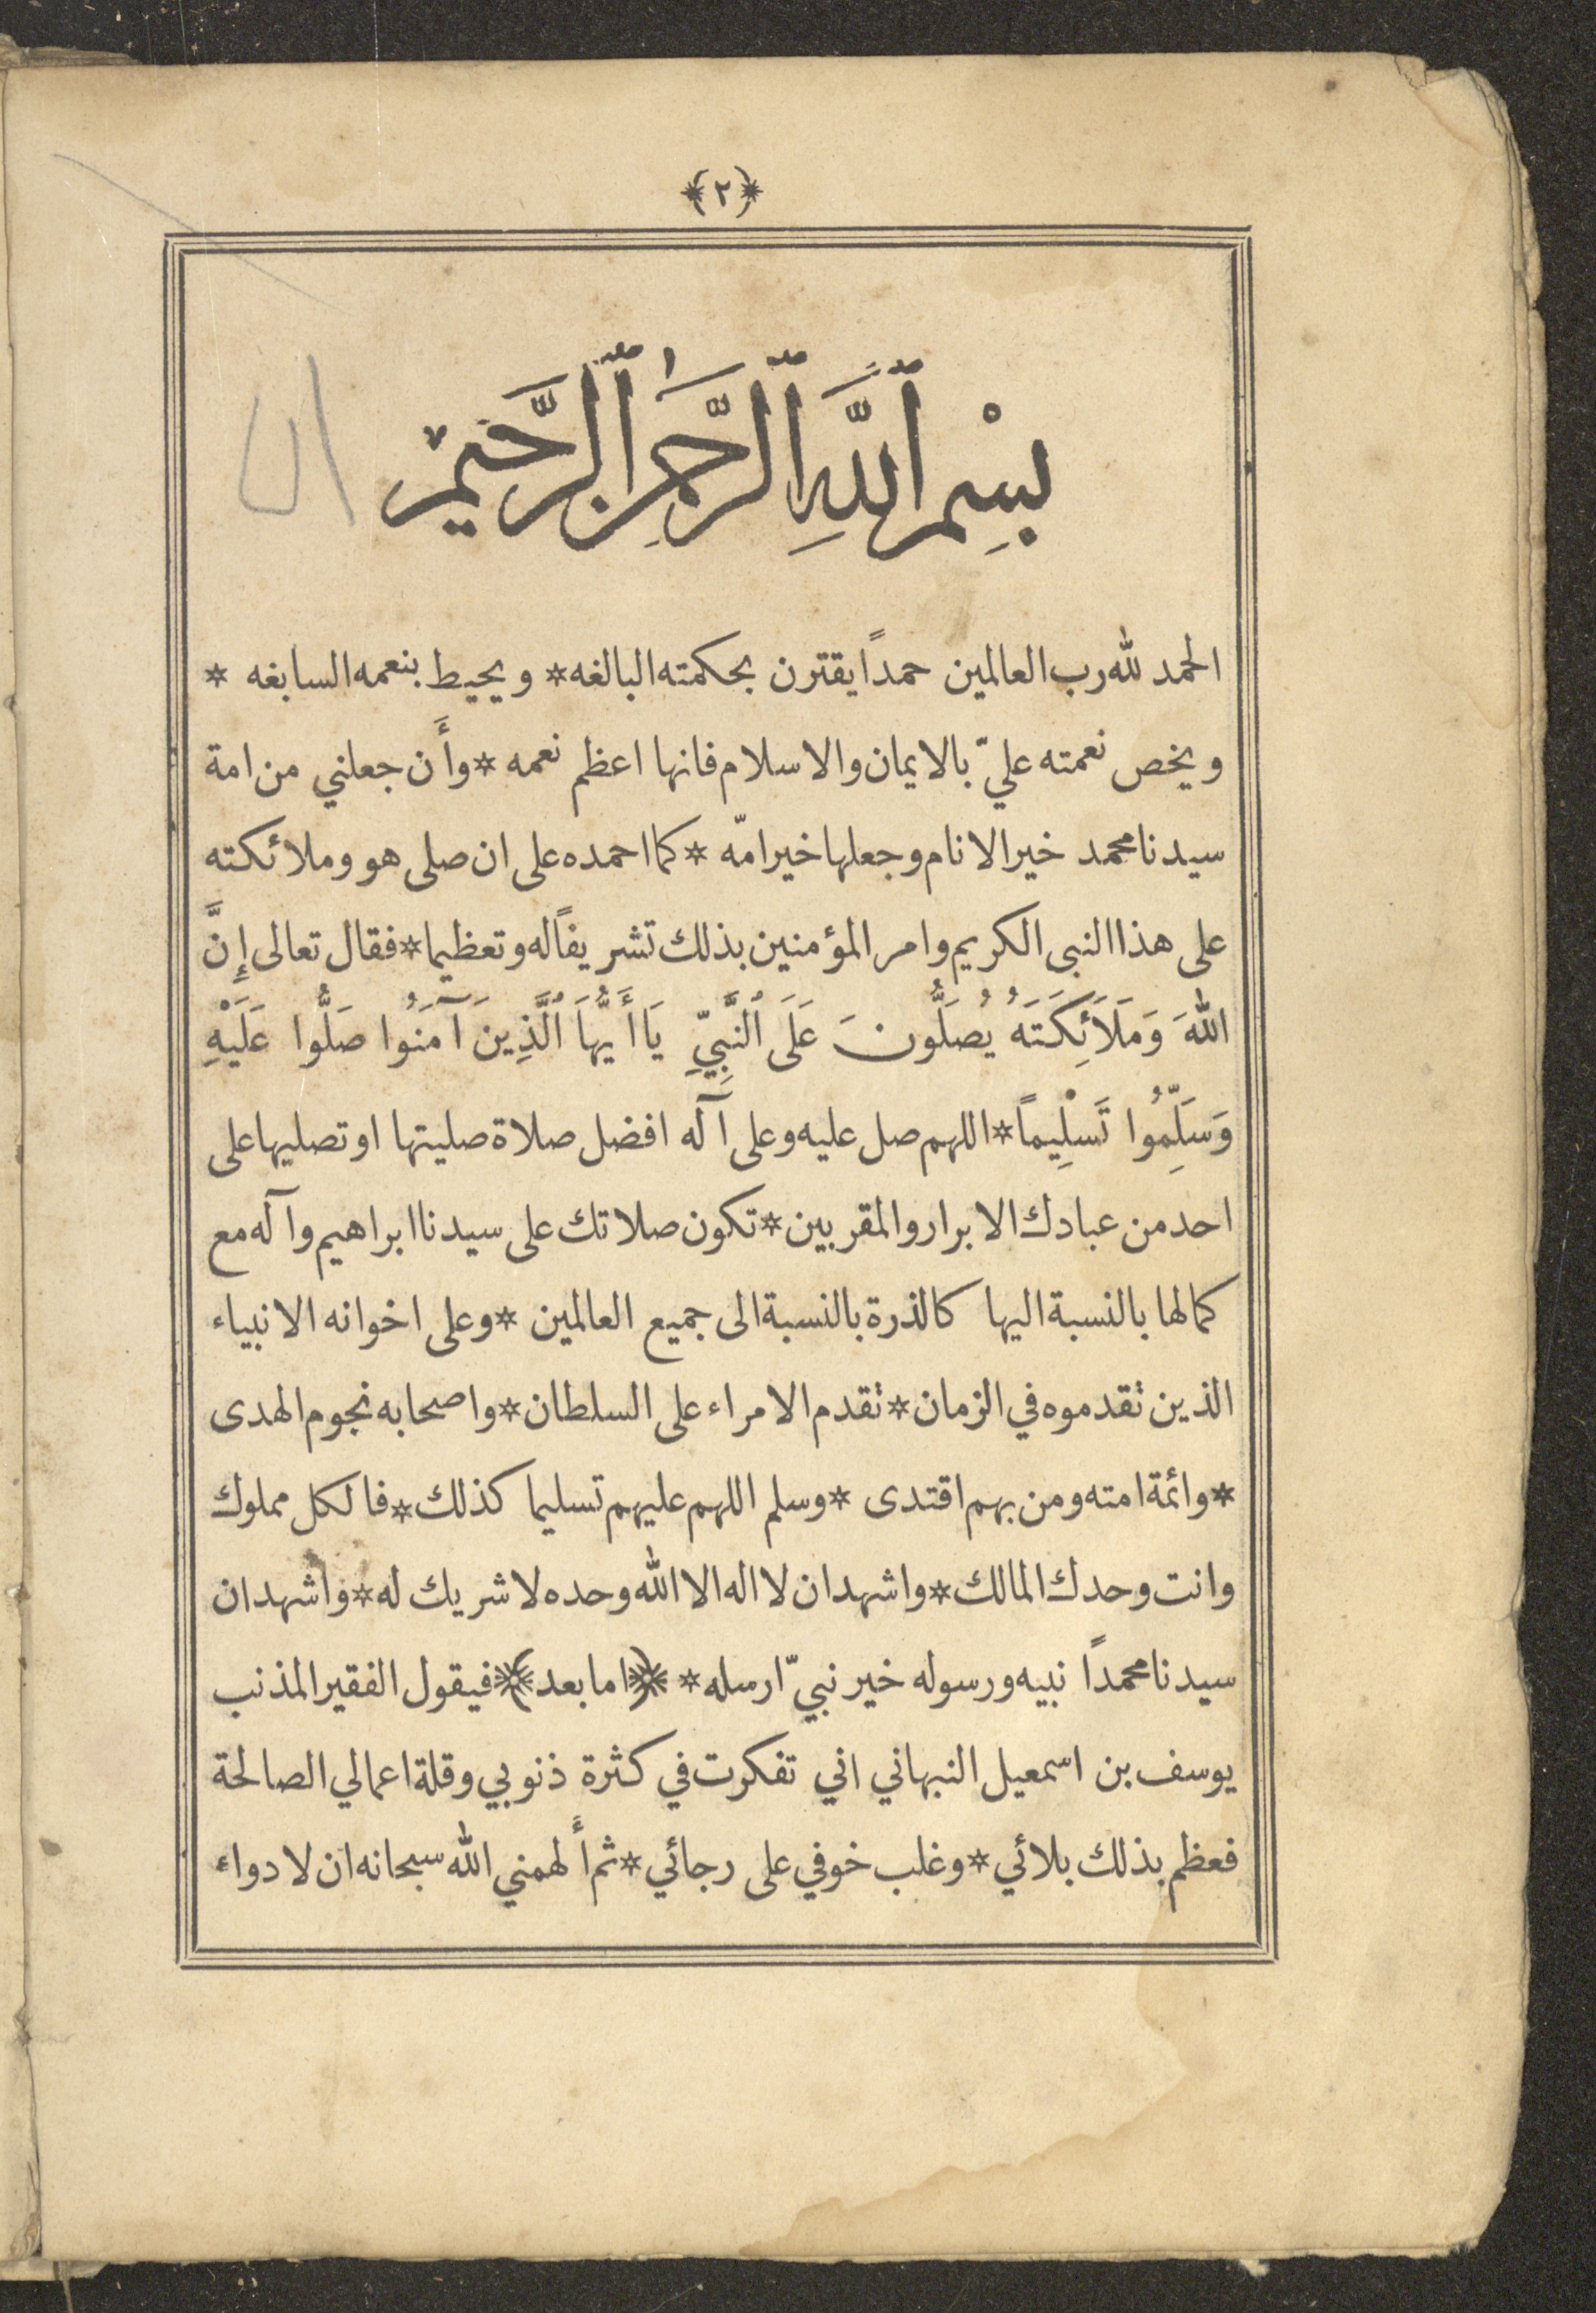 ﴿٢﴾
بِسْمِ ٱللَّهِ ٱلرَّحْمَٰنِ ٱلرَّحِيمِ
الحمد لله رب العالمين حمداً يقترن بحكمته البالغه * ويحيط بنعمه السابغه *
ويخص نعمته عليّ بالايمان والاسلام فانها اعظم نعمه * وأَن جعلني من امة
سيدنا محمد خير الانام وجعلها خير امّه * كما احمده على ان صلى هو وملائكته
على هذا النبي الكريم وامر المؤمنين بذلك تشريفاً له وتعظيما * فقال تعالى إِنَّ
اللهَ وَمَلَائِكَتَهُ يُصَلُّونَ عَلَى ٱلنَّبِيِّ يَا أَيُّهَا ٱلَّذِينَ آمَنُوا صَلُّوا عَلَيْهِ
وَسَلِّمُوا تَسْلِيماً * اللهم صل عليه وعلى آله افضل صلاة صليتها او تصليها على
احد من عبادك الابرار والمقربين * تكون صلاتك على سيدنا ابراهيم وآله مع
كمالها بالنسبة اليها كالذرة بالنسبة الى جميع العالمين * وعلى اخوانه الانبياء
الذين تقدموه في الزمان * تقدم الامراء على السلطان * واصحابه نجوم الهدى
* وائمة امته ومن بهم اقتدى * وسلم اللهم عليهم تسليما كذلك * فالكل مملوك
وانت وحدك المالك * واشهد ان لا اله الا الله وحده لا شريك له * واشهد ان
سيدنا محمداً نبيه ورسوله خير نبيّ ارسله * ﴿اما بعد﴾ فيقول الفقير المذنب
يوسف بن اسمعيل النبهاني اني تفكرت في كثرة ذنوبي وقلة اعمالي الصالحة
فعظم بذلك بلائي * وغلب خوفي على رجائي * ثم أَلهمني الله سبحانه ان لا دواء